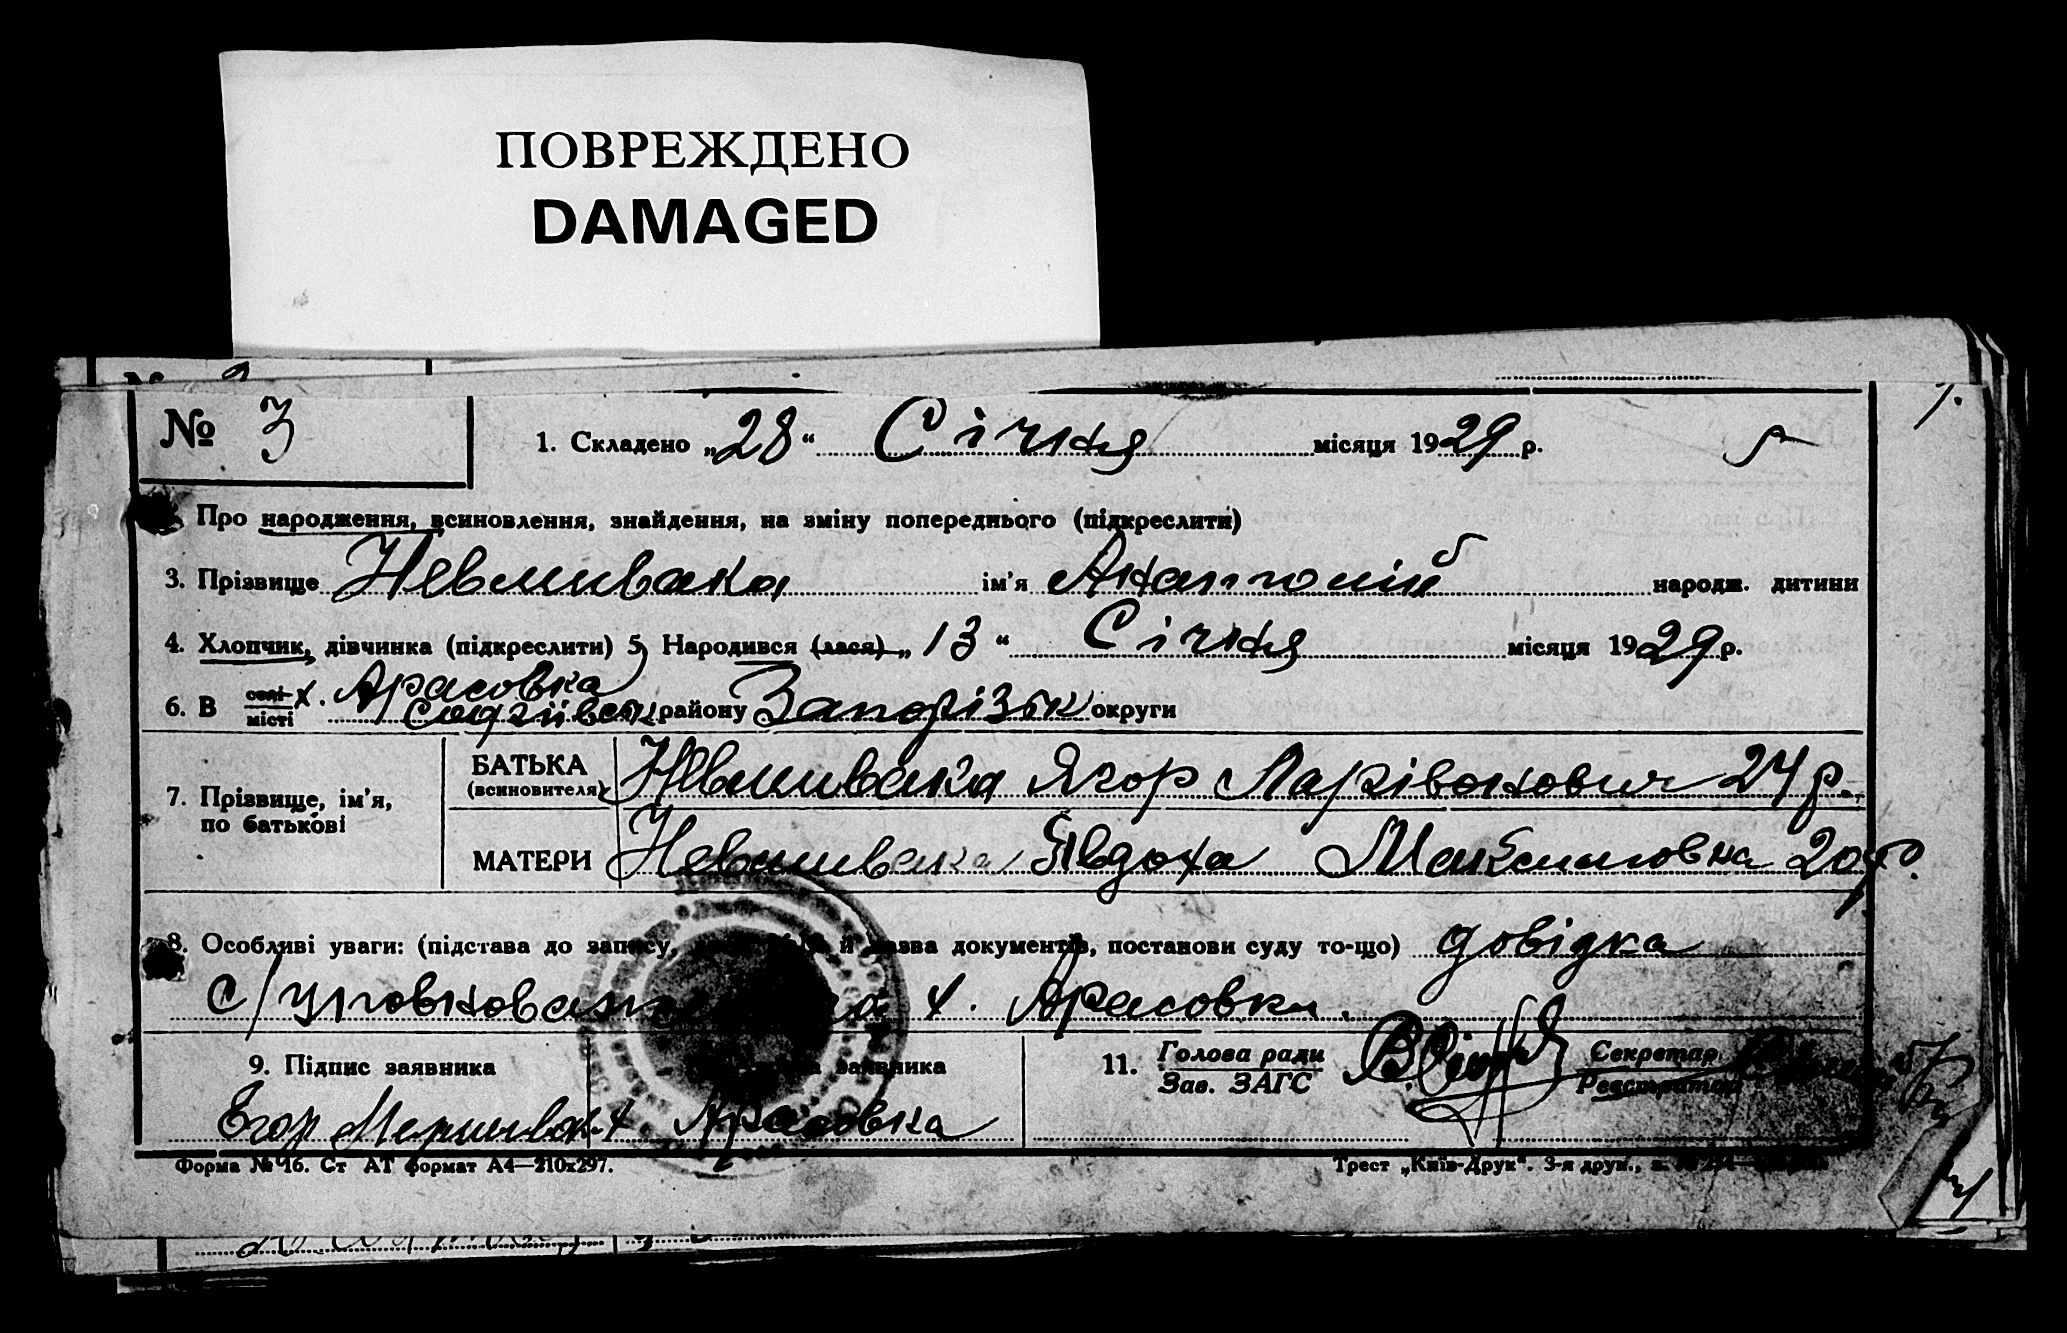 ПОВРЕЖДЕНО
DAMAGED
№ 3
1. Складено „28“ Січня місяця 1929 р.
Про народження, всиновлення, знайдення, на зміну попереднього (підкреслити)
3. Прізвище Невмивака ім’я Анатолій народж. дитини
4. Хлопчик, дівчинка (підкреслити) 5. Народився (лася) „13“ Січня місяця 1929 р.
6. В селі х. Арасовка
місті району Запорізьк округи
7. Прізвище, ім’я, по батькові
БАТЬКА (всиновителя) Невмивака Ягор Ларівонович 24 р.
МАТЕРИ Невмивака Явдоха Максимовна 20 р.
8. Особливі уваги: (підстава до запису, й назва документів, постанови суду то-що) довідка
с/уповноваж х. Арасовки.
9. Підпис заявника
заявника
11. Голова ради
Зав. ЗАГС
Секретар
Реєстратор
Егор х Арасовка
Форма № 16. Ст АТ формат А4—210х297.
Трест „Київ-Друк“. 3-я друк.,